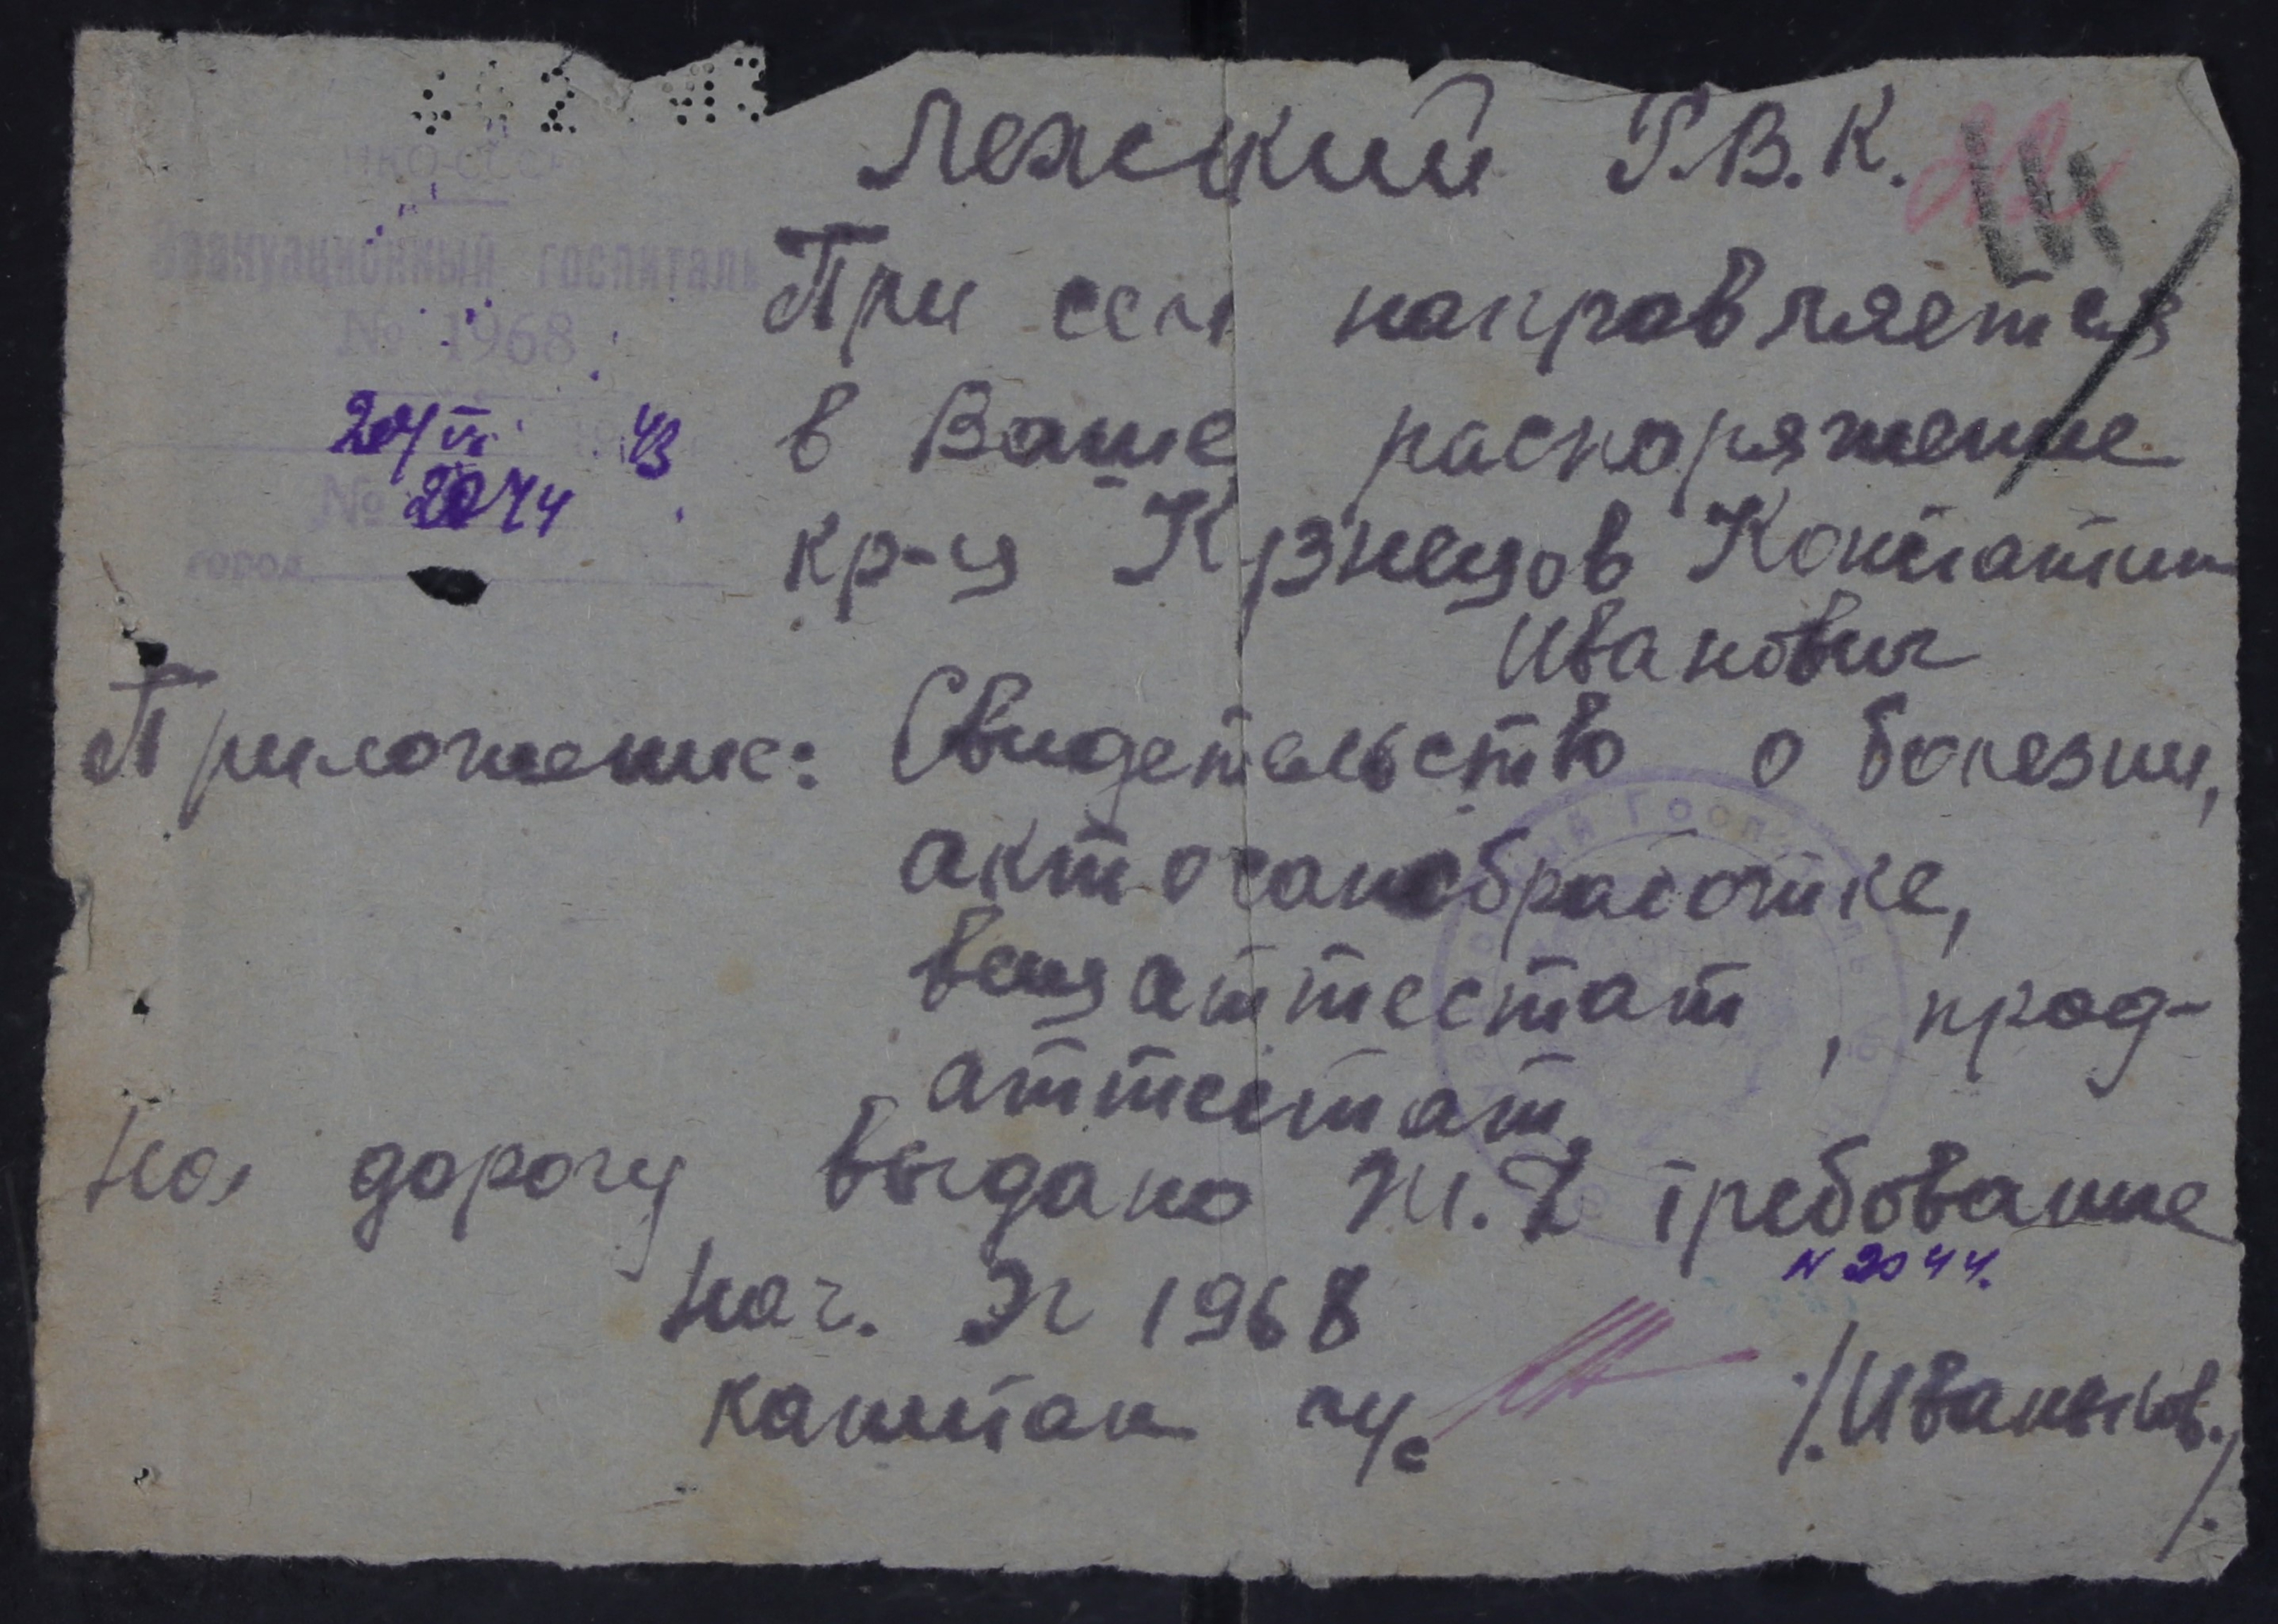 Лежский Р.В.К.
НКО-СССР
Эвакуационный госпиталь
№ 1968
При сем направляется
20/VI 43
в Ваше распоряжение
№ 2044
город
кр-ц Кузнецов Констатин
Иванович
Приложение: Свидетельство о болезни,
акт о санобработке,
вещаттестат, прод-
аттестат.
На дорогу выдано ж.д. требование
N 2044.
Нач. ЭГ 1968
капитан м/с /Иваньков./